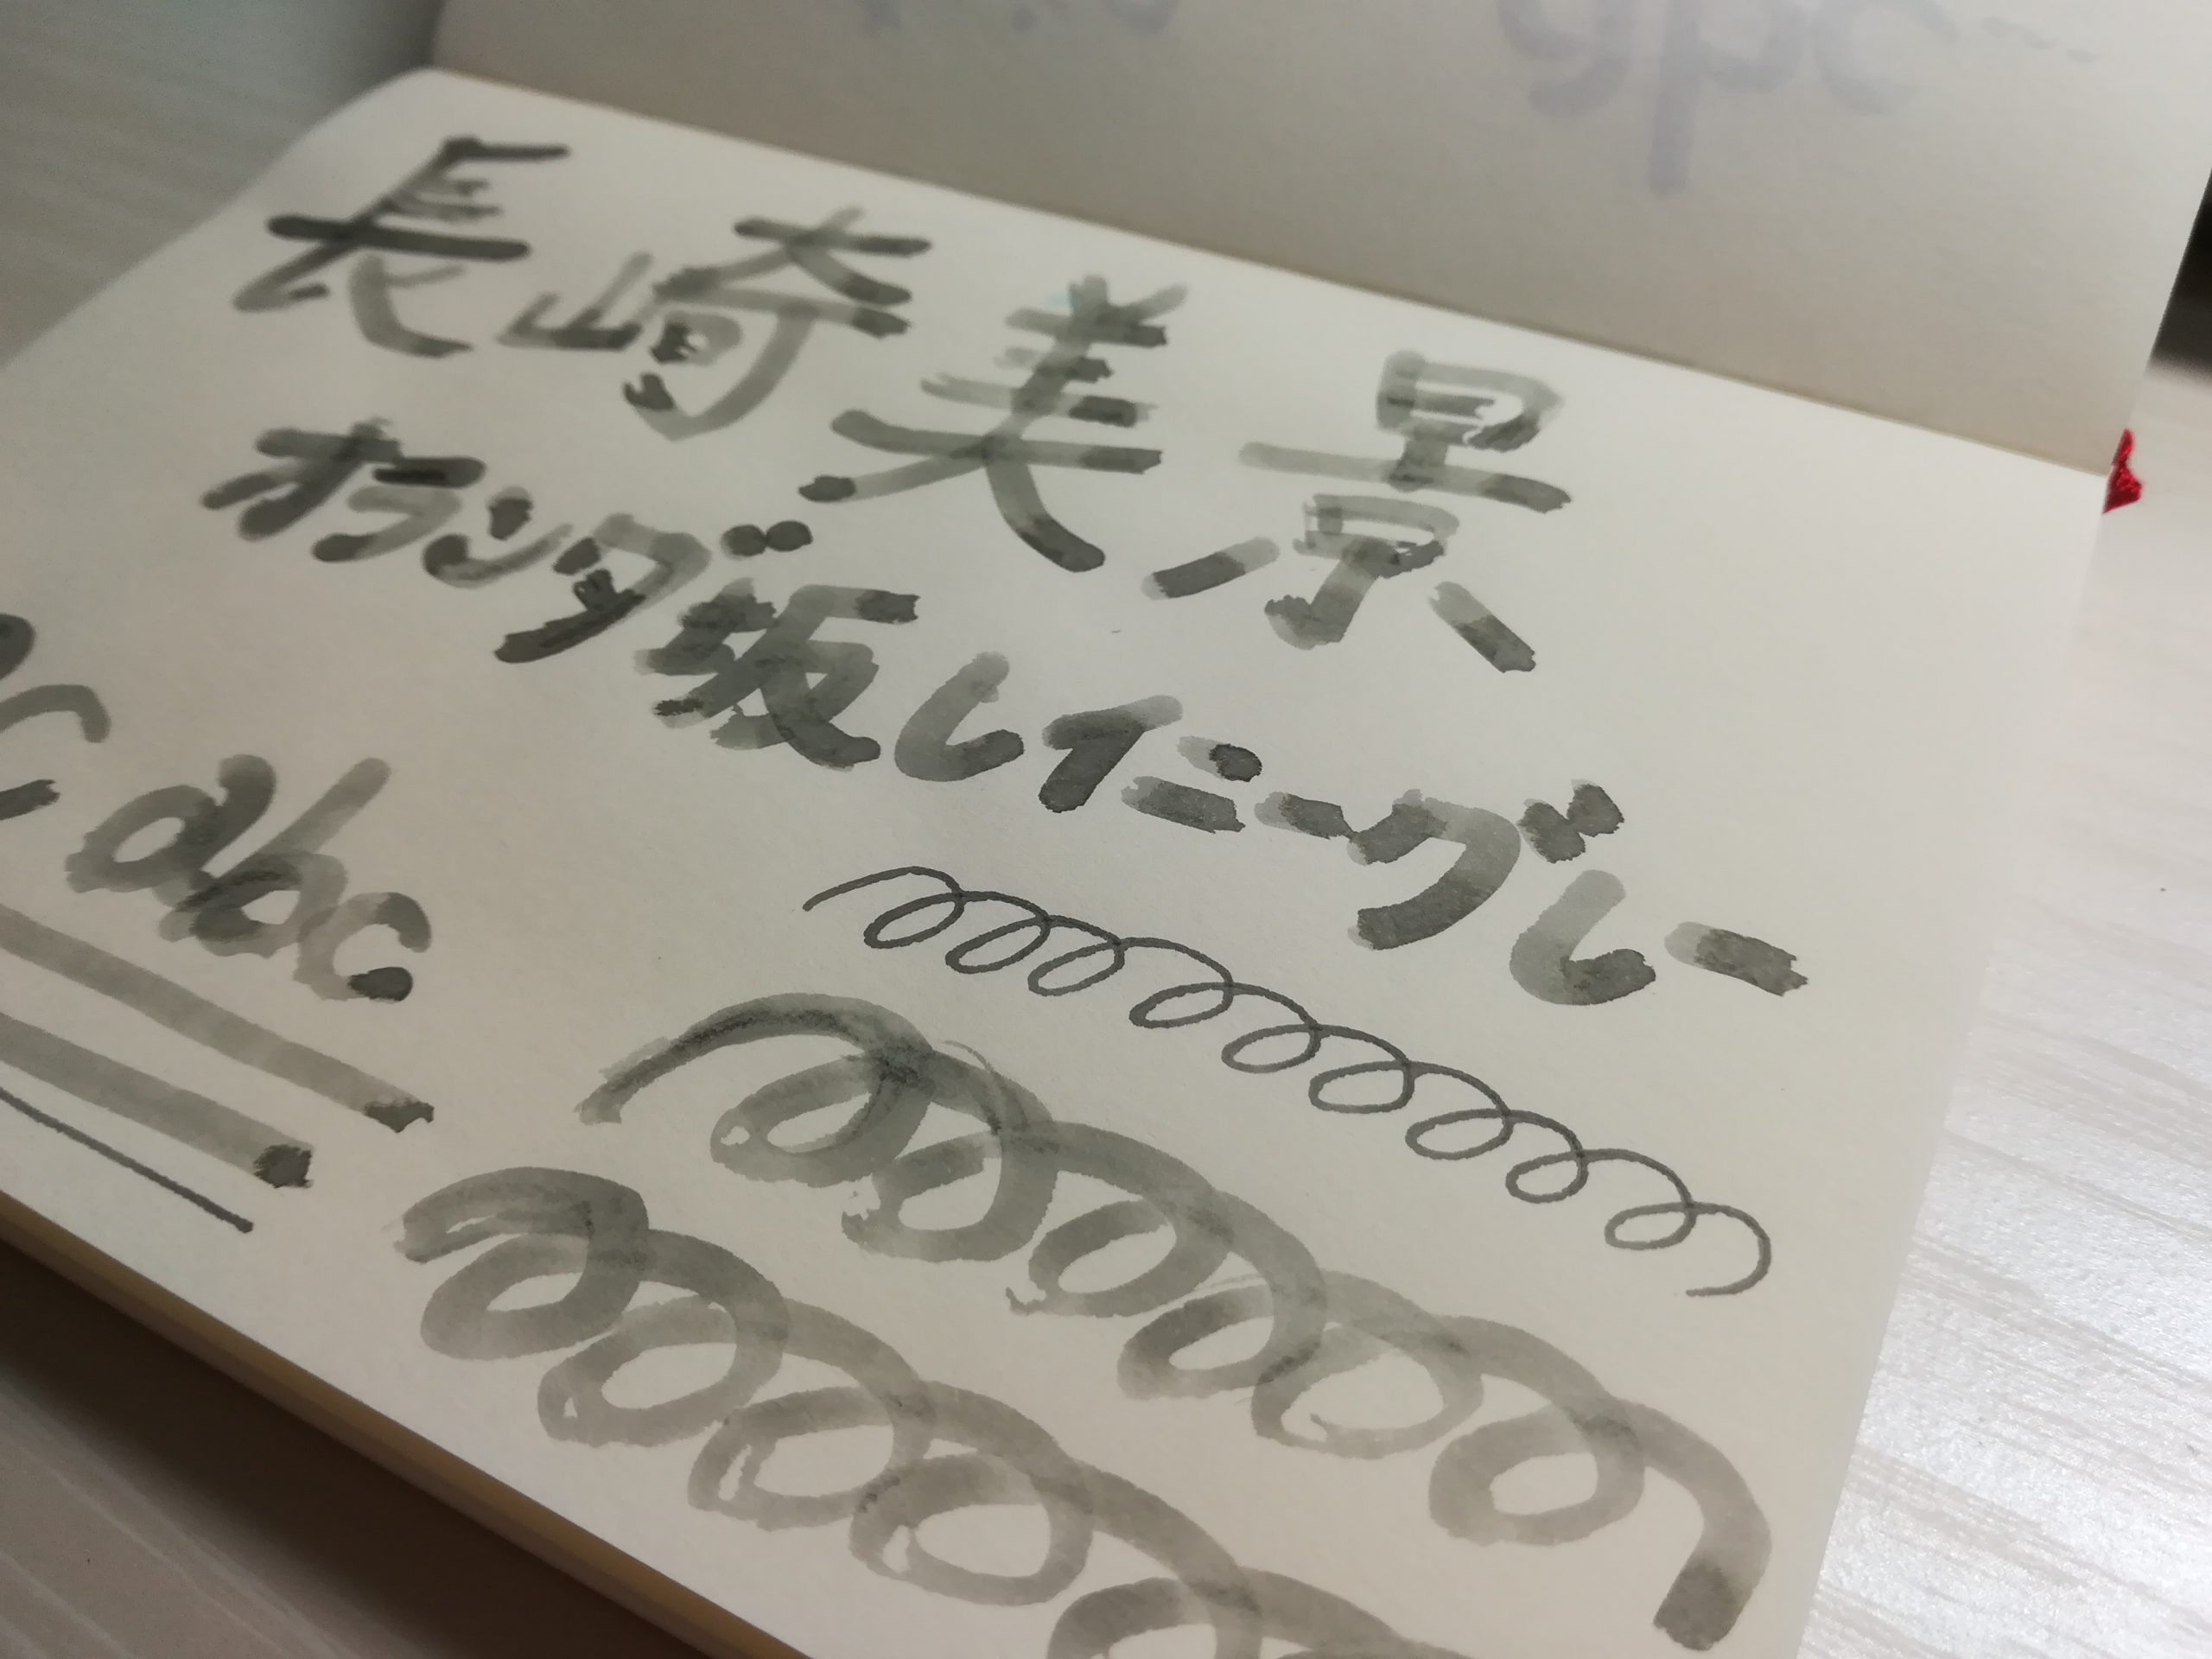 長崎美景
オランダ坂レイニーグレー
abc